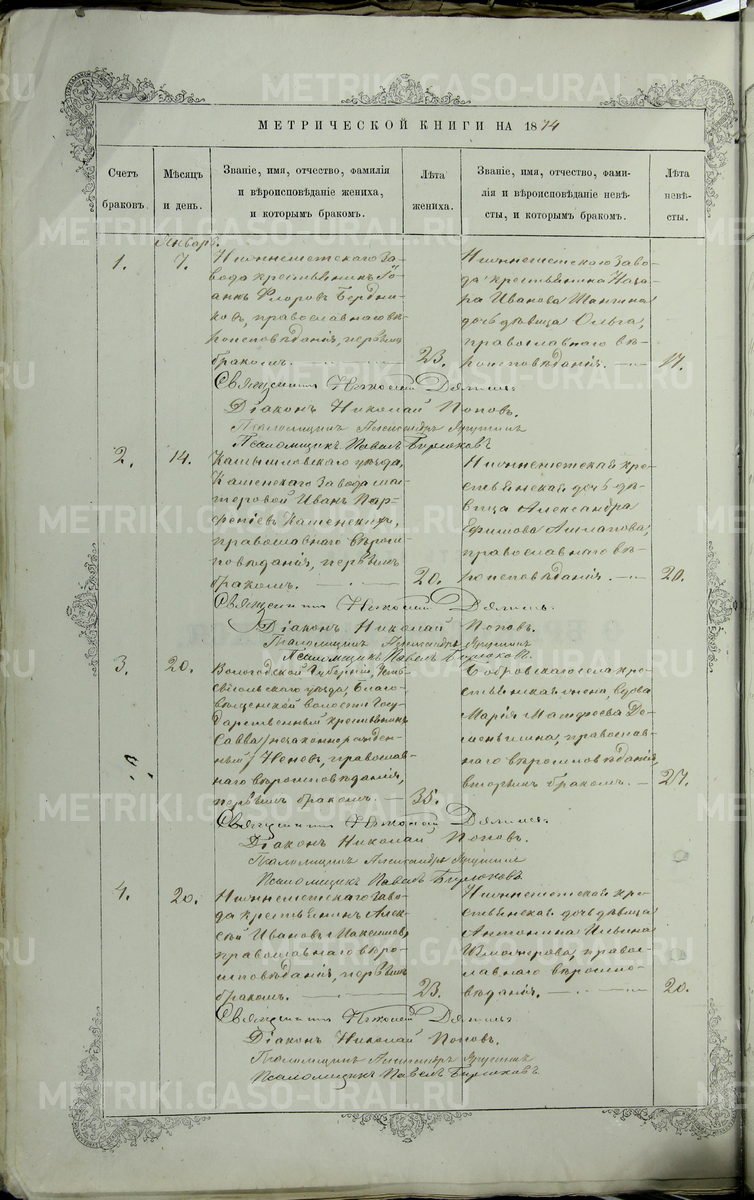 МЕТРИЧЕСКОЙ КНИГИ НА 1874
Счетъ браковъ.
Мѣсяцъ и день.
Званіе, имя, отчество, фамилія и вѣроисповѣданіе жениха, и которымъ бракомъ.
Лѣта жениха.
Званіе, имя, отчество, фами-
лія и вѣроисповѣданіе невѣ-
сты, и которымъ бракомъ.
Лѣта невѣ-
сты.
Январь.
1.
7.
Нижнеисетскаго За-
вода крестьянинъ Іо-
аннъ Флоровъ Бердни-
ковъ, православнаго вѣ-
роисповѣданія, первымъ
бракомъ.
23.
Нижнеисетскаго Заво-
да крестьянина Наза-
ра Иванова
дочь дѣвица Ольга,
православнаго вѣ-
роисповѣданія.
17.
Священникъ Николай
Діаконъ Николай Поповъ.
Псаломщикъ Александръ
Псаломщикъ Павелъ Бирюковъ
2.
14.
Камышловскаго уѣзда,
Каменскаго Завода ма-
стеровой Иванъ Пар-
феніевъ Каменскихъ,
православнаго вѣроис-
повѣданія, первымъ
бракомъ.
20.
Нижнеисетская кре-
стьянская дочь дѣ-
вица Александра
Ефимова
православнаго вѣ-
роисповѣданія.
20.
Священникъ Николай
Діаконъ Николай Поповъ.
Псаломщикъ Александръ
Псаломщикъ Павелъ Бирюковъ
3.
20.
Вологодской Губерніи, Усть-
сысольскаго уѣзда, Благо-
вѣщенской волости Госу-
дарственный крестьянинъ
Савва (незаконнорожден-
ный) православ-
наго вѣроисповѣданія,
первымъ бракомъ.
35.
Бобровскаго села кре-
стьянская жена, вдова
Марія Матфеева
православ-
наго вѣроисповѣданія,
вторымъ бракомъ.
27.
Священникъ Николай
Діаконъ Николай Поповъ.
Псаломщикъ Александръ
Псаломщикъ Павелъ Бирюковъ
4.
20.
Нижнеисетскаго Заво-
да крестьянинъ Алек-
сѣй Ивановъ Максимовъ,
православнаго вѣро-
исповѣданія, первымъ
бракомъ.
23.
Нижнеисетская кре-
стьянская дочь дѣвица
Антонина Ильина
правос-
лавнаго вѣроиспо-
вѣданія.
20.
Священникъ Николай
Діаконъ Николай Поповъ.
Псаломщикъ Александръ
Псаломщикъ Павелъ Бирюковъ
METRIKI.GASO-URAL.RU